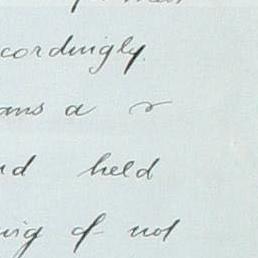 cordingly.
ans a r
nd held
ing of not